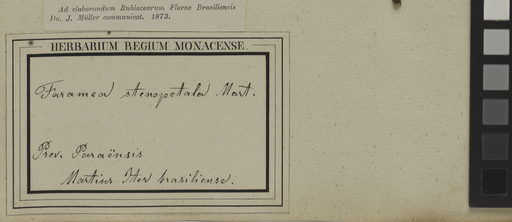 Ad elaborandum Rubiacearum Florae Brasiliensis
Do. J. Müller communicat. 1873.
HERBARIUM REGIUM MONACENSE.
Faramea stenopetala Mart.
Prov. Paraënsis
Martius Iter brasiliense.